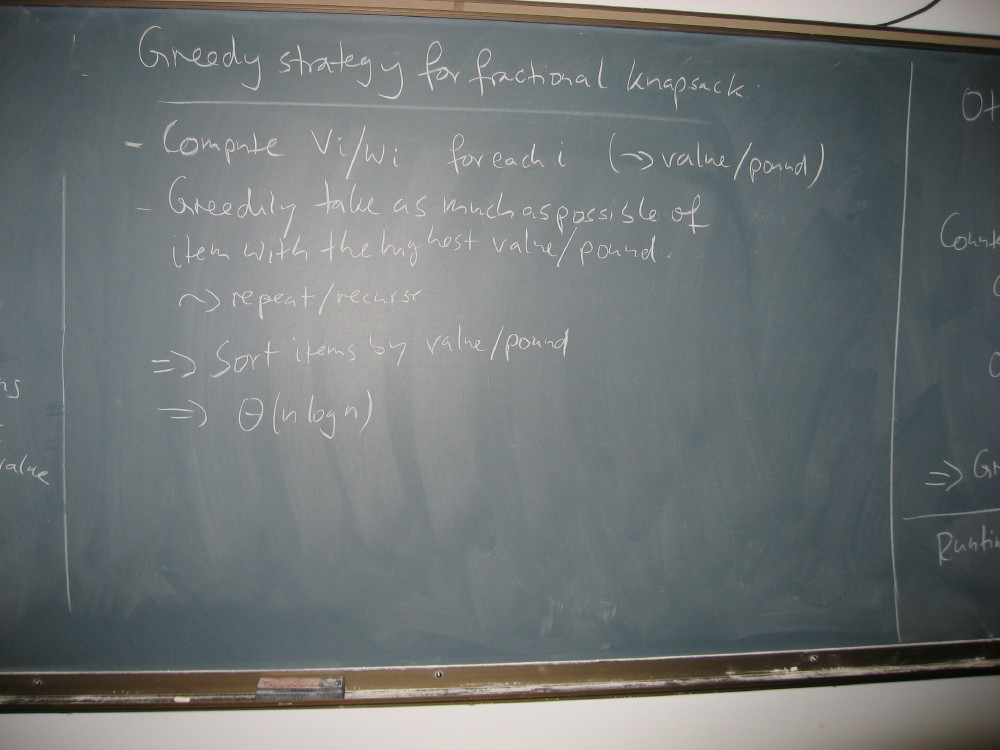 Greedy strategy for fractional knapsack
- Compute Vi/wi for each i (→ value/pound)
- Greedily take as much as possible of
item with the highest value/pound.
~> repeat/recurse
=> Sort items by value/pound
=> Θ(n log n)
value
=> Gr
Runti